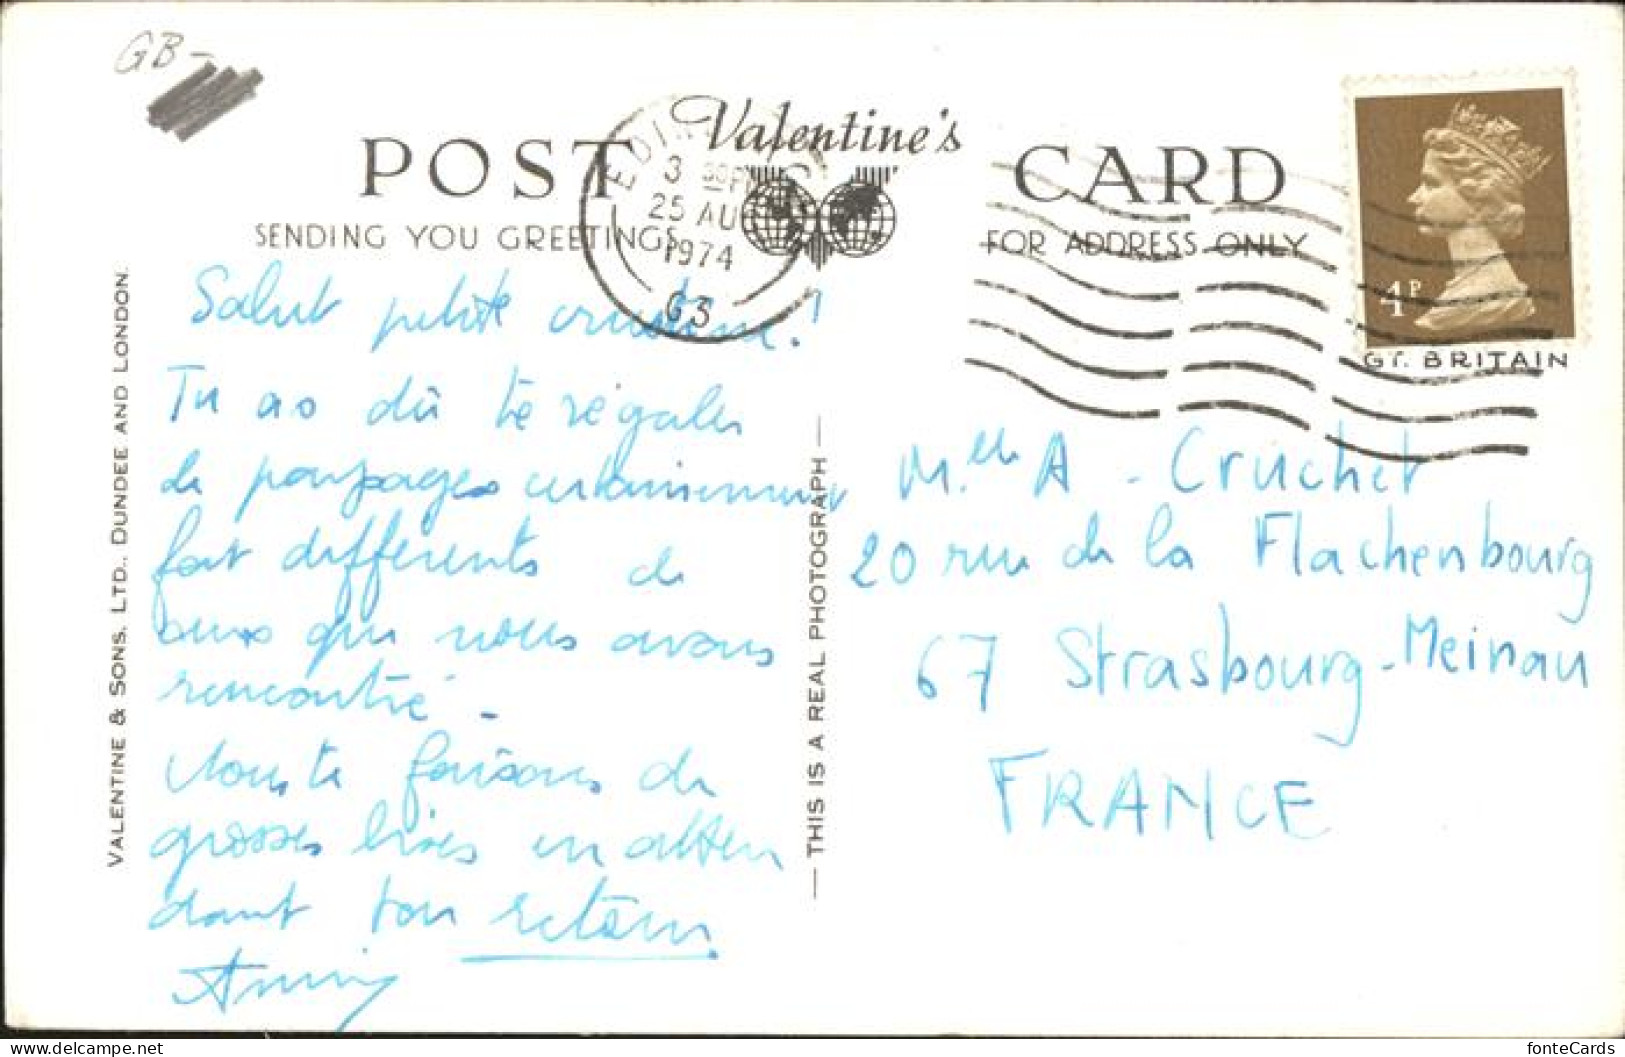 GB-
POST
Valentine's
CARD
SENDING YOU GREETINGS
FOR ADDRESS ONLY
3 30P
25 AU
1974
G3
4P
GT. BRITAIN
VALENTINE & SONS, LTD., DUNDEE AND LONDON.
Salut petite !
Tu as dû te régaler
de paysages certainement
fort différents de
ceux que nous avons
rencontré -
Nous te faisons de
grosses bises en atten
dant ton retour.
— THIS IS A REAL PHOTOGRAPH —
Mlle A - Cruchet
20 rue de la Flachenbourg
67 Strasbourg-Meinau
FRANCE
fonteCards
https://www.delcampe.net